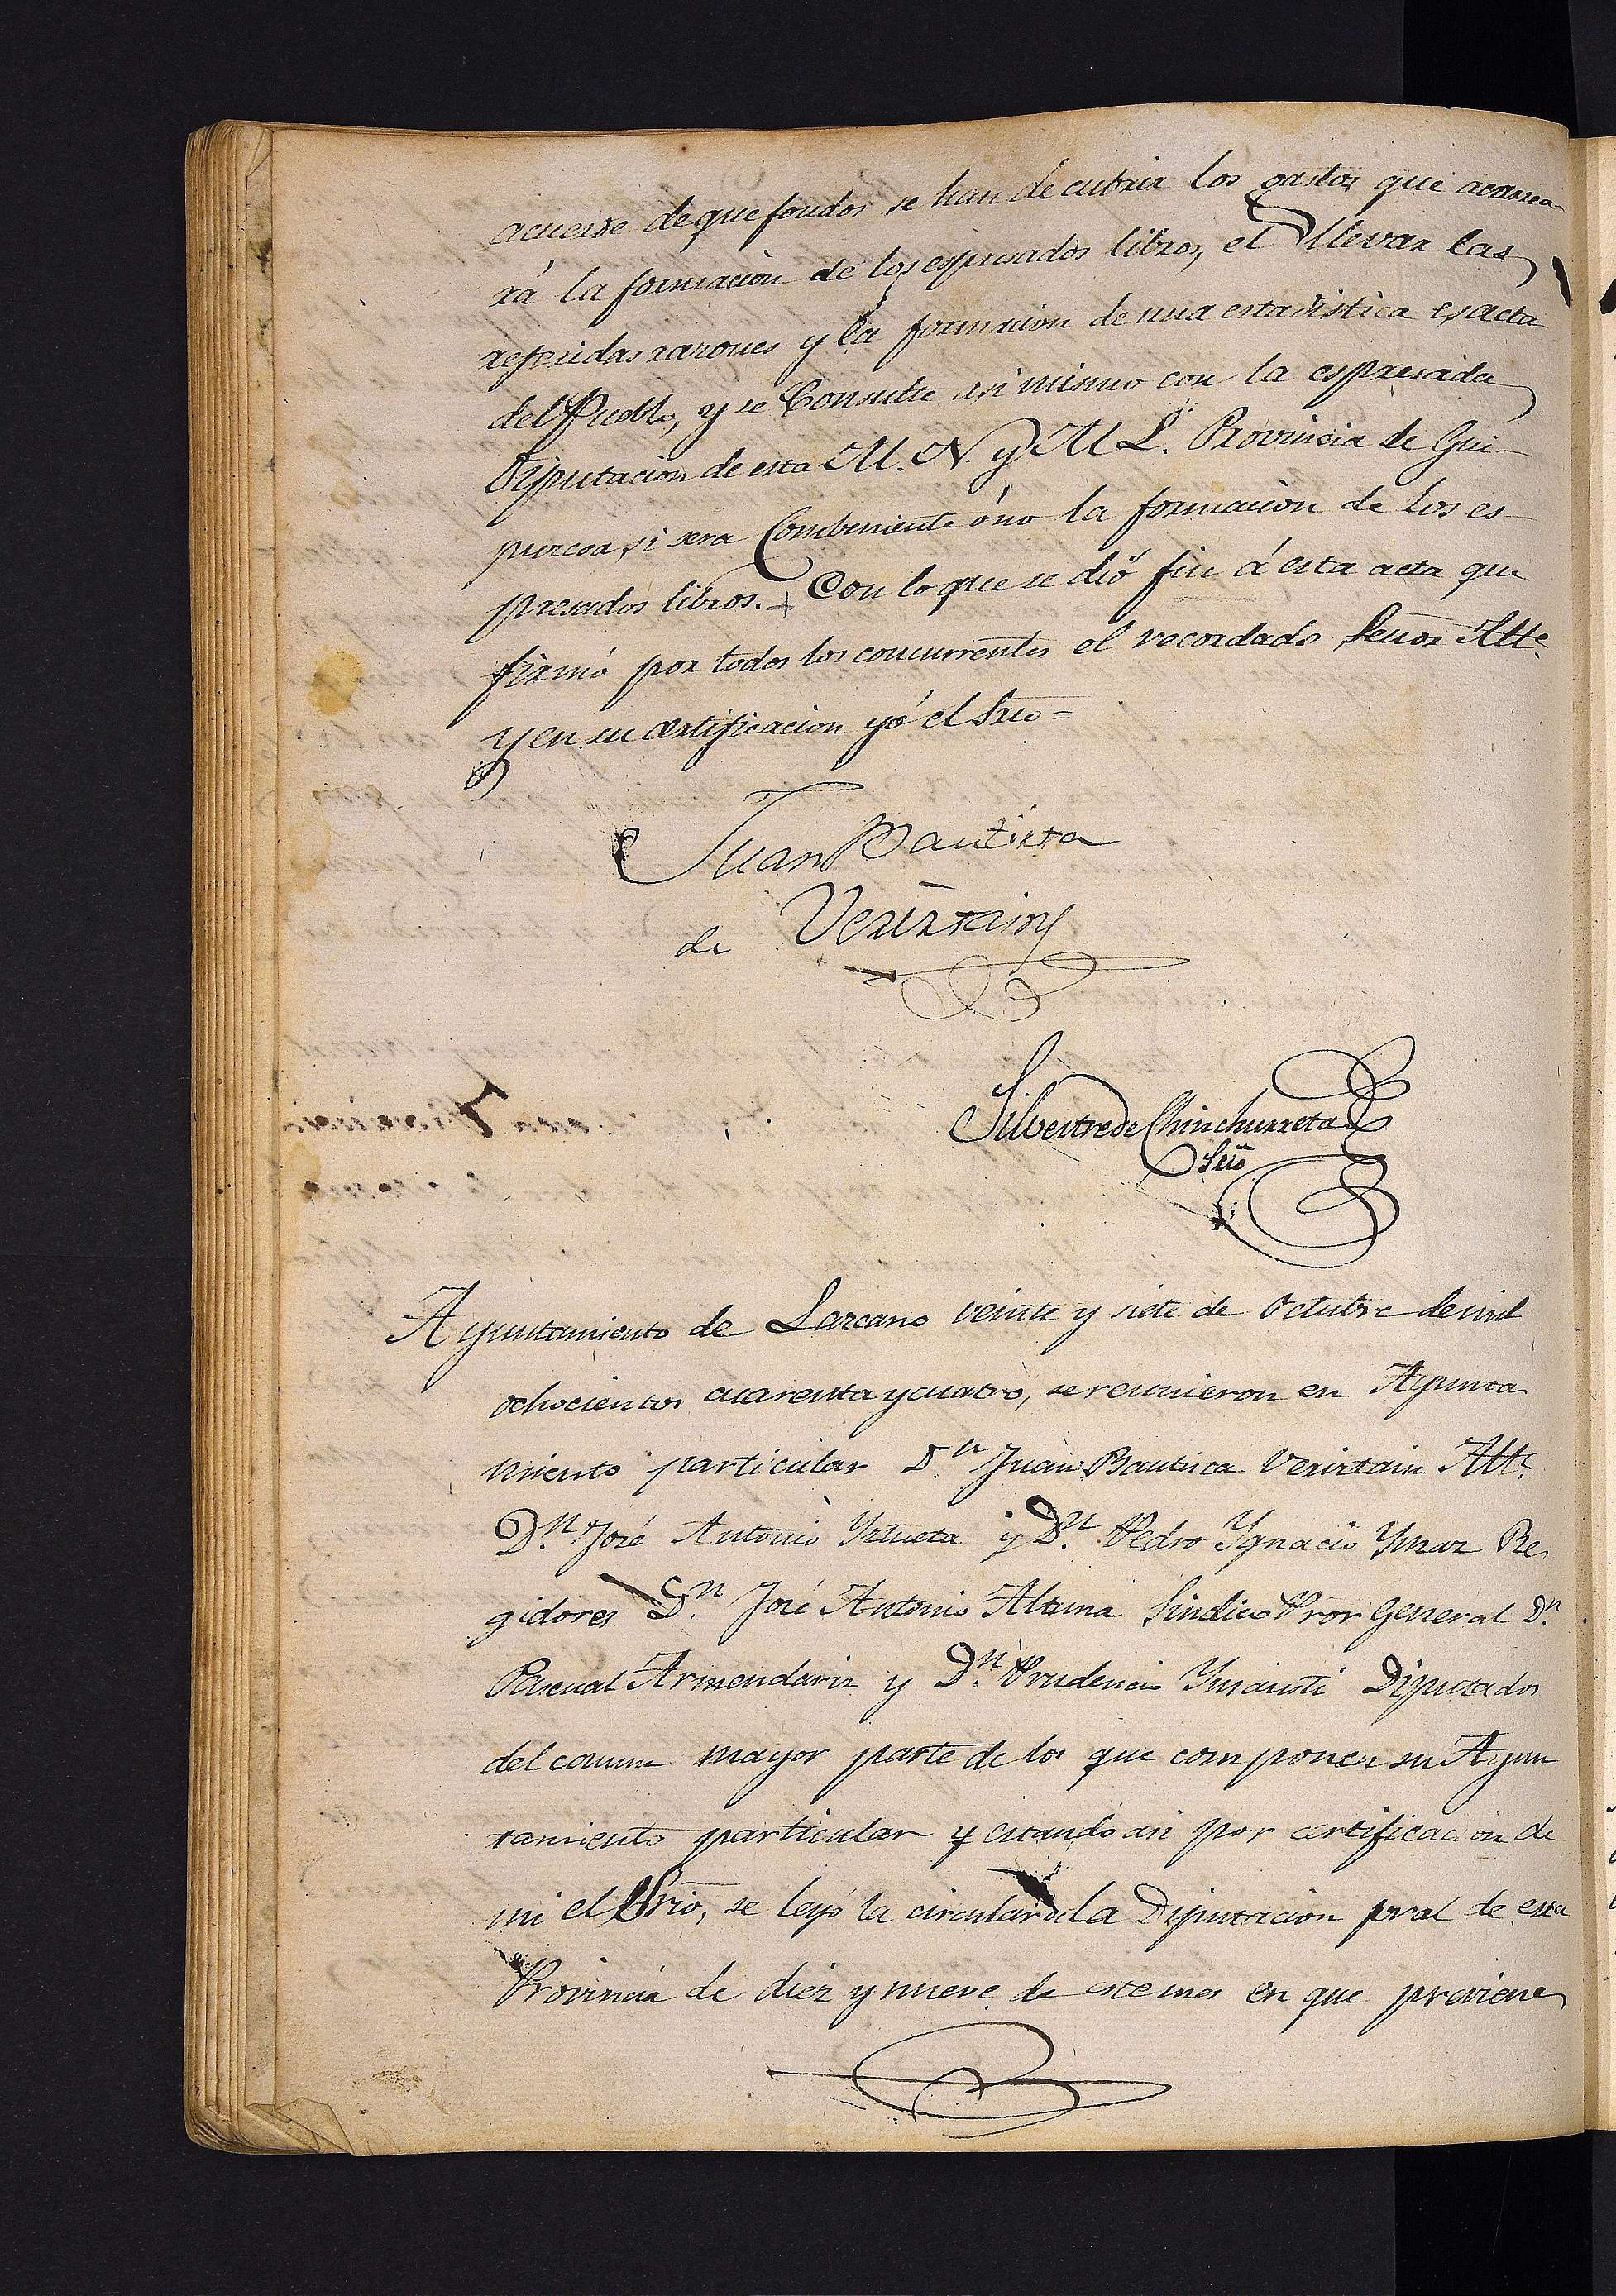 acuerde de que fondos se han de cubrir los gastos que acarrea-
rá la formacion de los espresados libros, el llevar las
referidas razones y la formacion de una estadistica esacta
del Pueblo, y se Consulte asi mismo con la espresada
Diputacion de esta M. N. y M L. Provincia de Gui-
puzcoa, si sera Combeniente ó no la formacion de los es-
presados libros. + Con lo que se dió fin á esta acta que
firmó por todos los concurrentes el recordado Señor Alte
y en su certificacion yó el Srio =
Juan Bautista
de Verirtain
Silbestre de Chinchurreta
Srio
Ayuntamiento de Lazcano veinte y siete de Octubre de mil
ochocientos cuarenta y cuatro, se reunieron en Ayunta
miento particular Dn Juan Bautista Verirtain Alte
Dn José Antonio Yztueta y Dn Pedro Ygnacio Ymaz Re
gidores Dn José Antonio Altuna Sindico Pror General Dn
Pascual Armendariz y Dn Prudencio Ynsausti Diputados
del comun mayor parte de los que componen su Ayun
tamiento particular y estando asi por certificacion de
mi el Srio, se leyó la circular de la Diputacion pral de esta
Provincia de diez y nueve de este mes en que previene